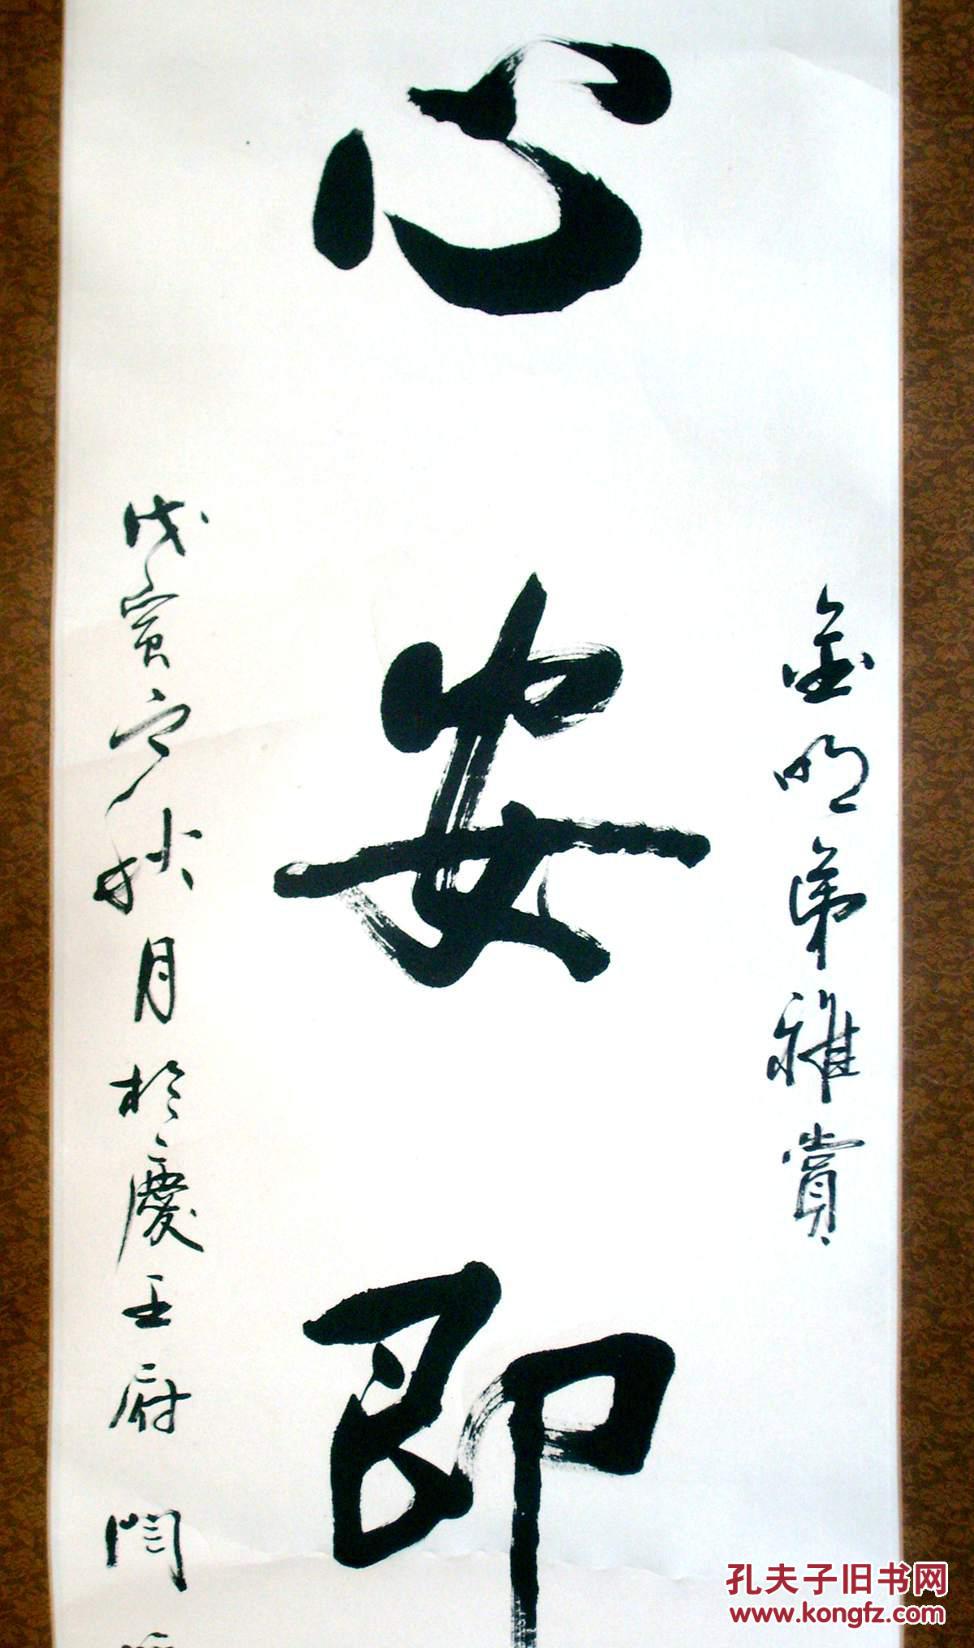 金明弟雅賞
心安即
戊寅之秋月於慶王府 閆
孔夫子旧书网
www.kongfz.com